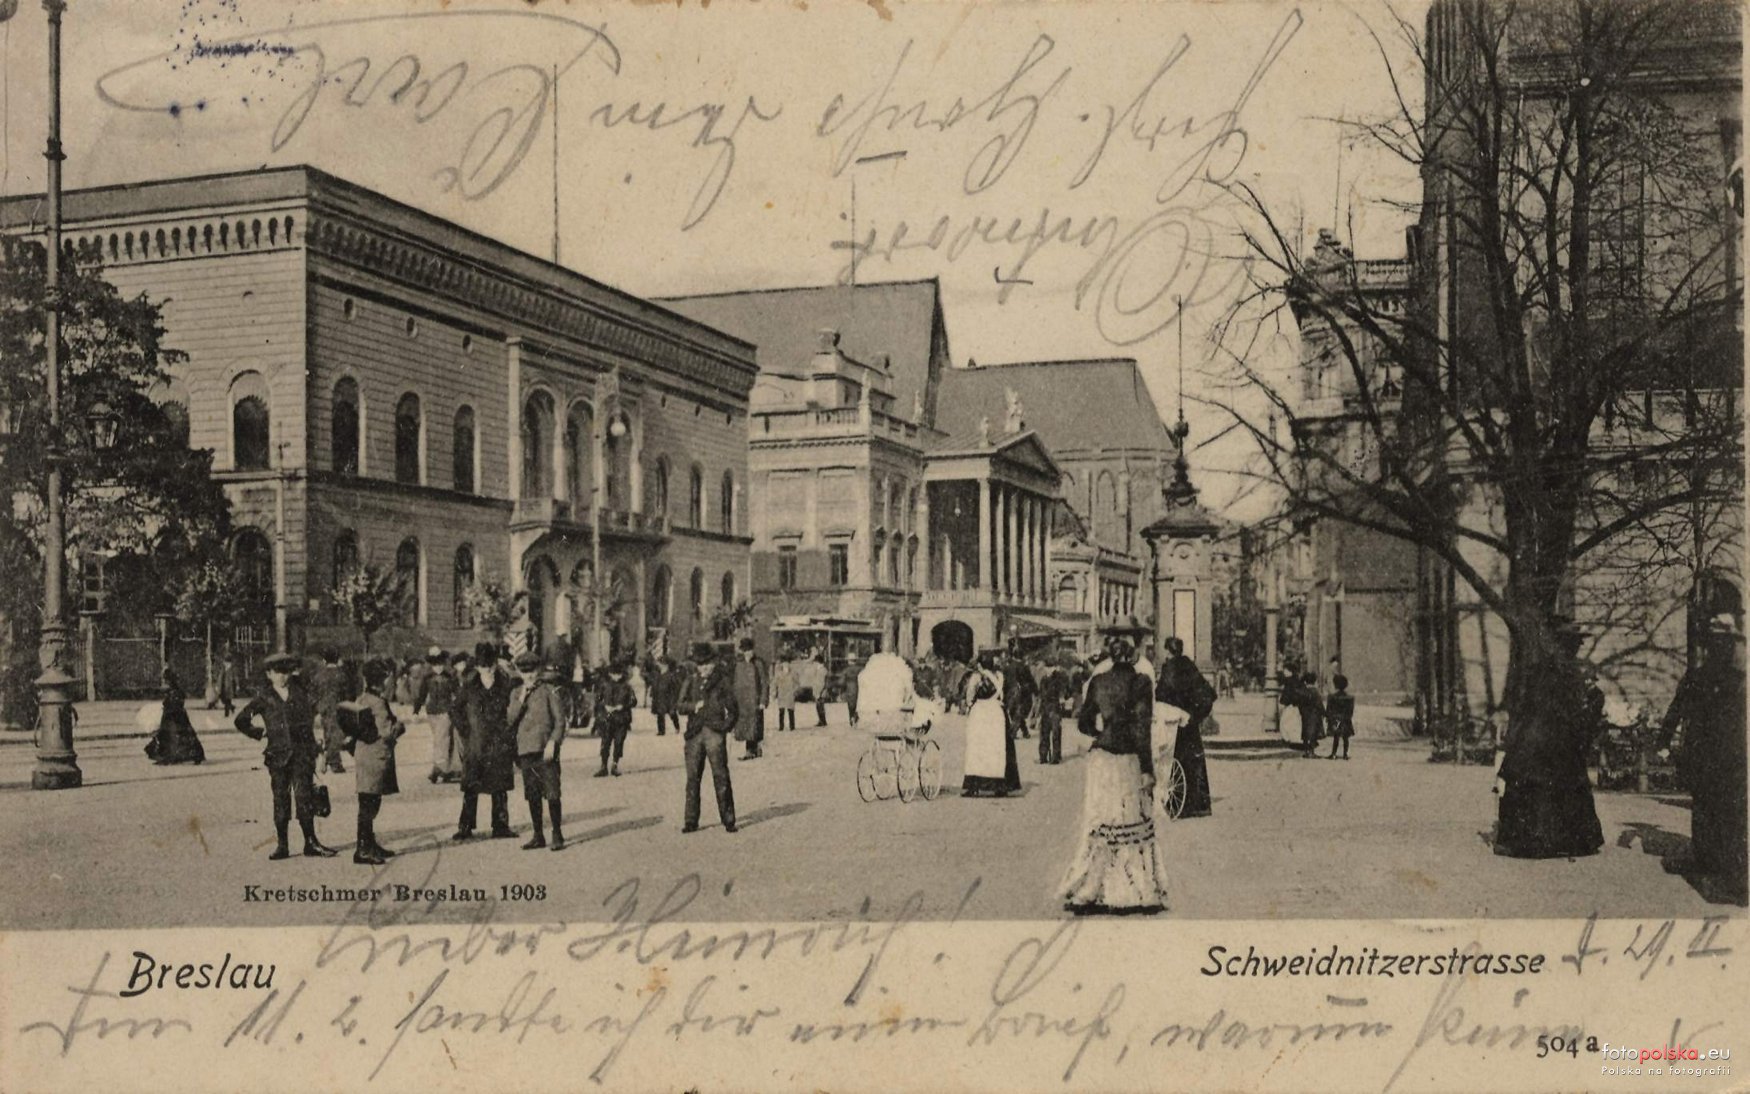 Kretschmer Breslau 1903
Lieber Heinrich!
Breslau
Schweidnitzerstrasse
d. 29. II.
Den 11. 2. sandte ich dir einen Brief, warum keine
504 a
Antwort
Herzl. Grüße
dein
Karl
fotopolska.eu
Polska na fotografii